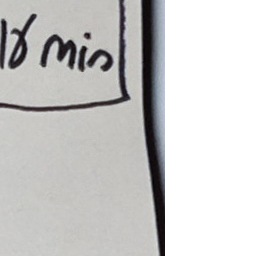 18 min